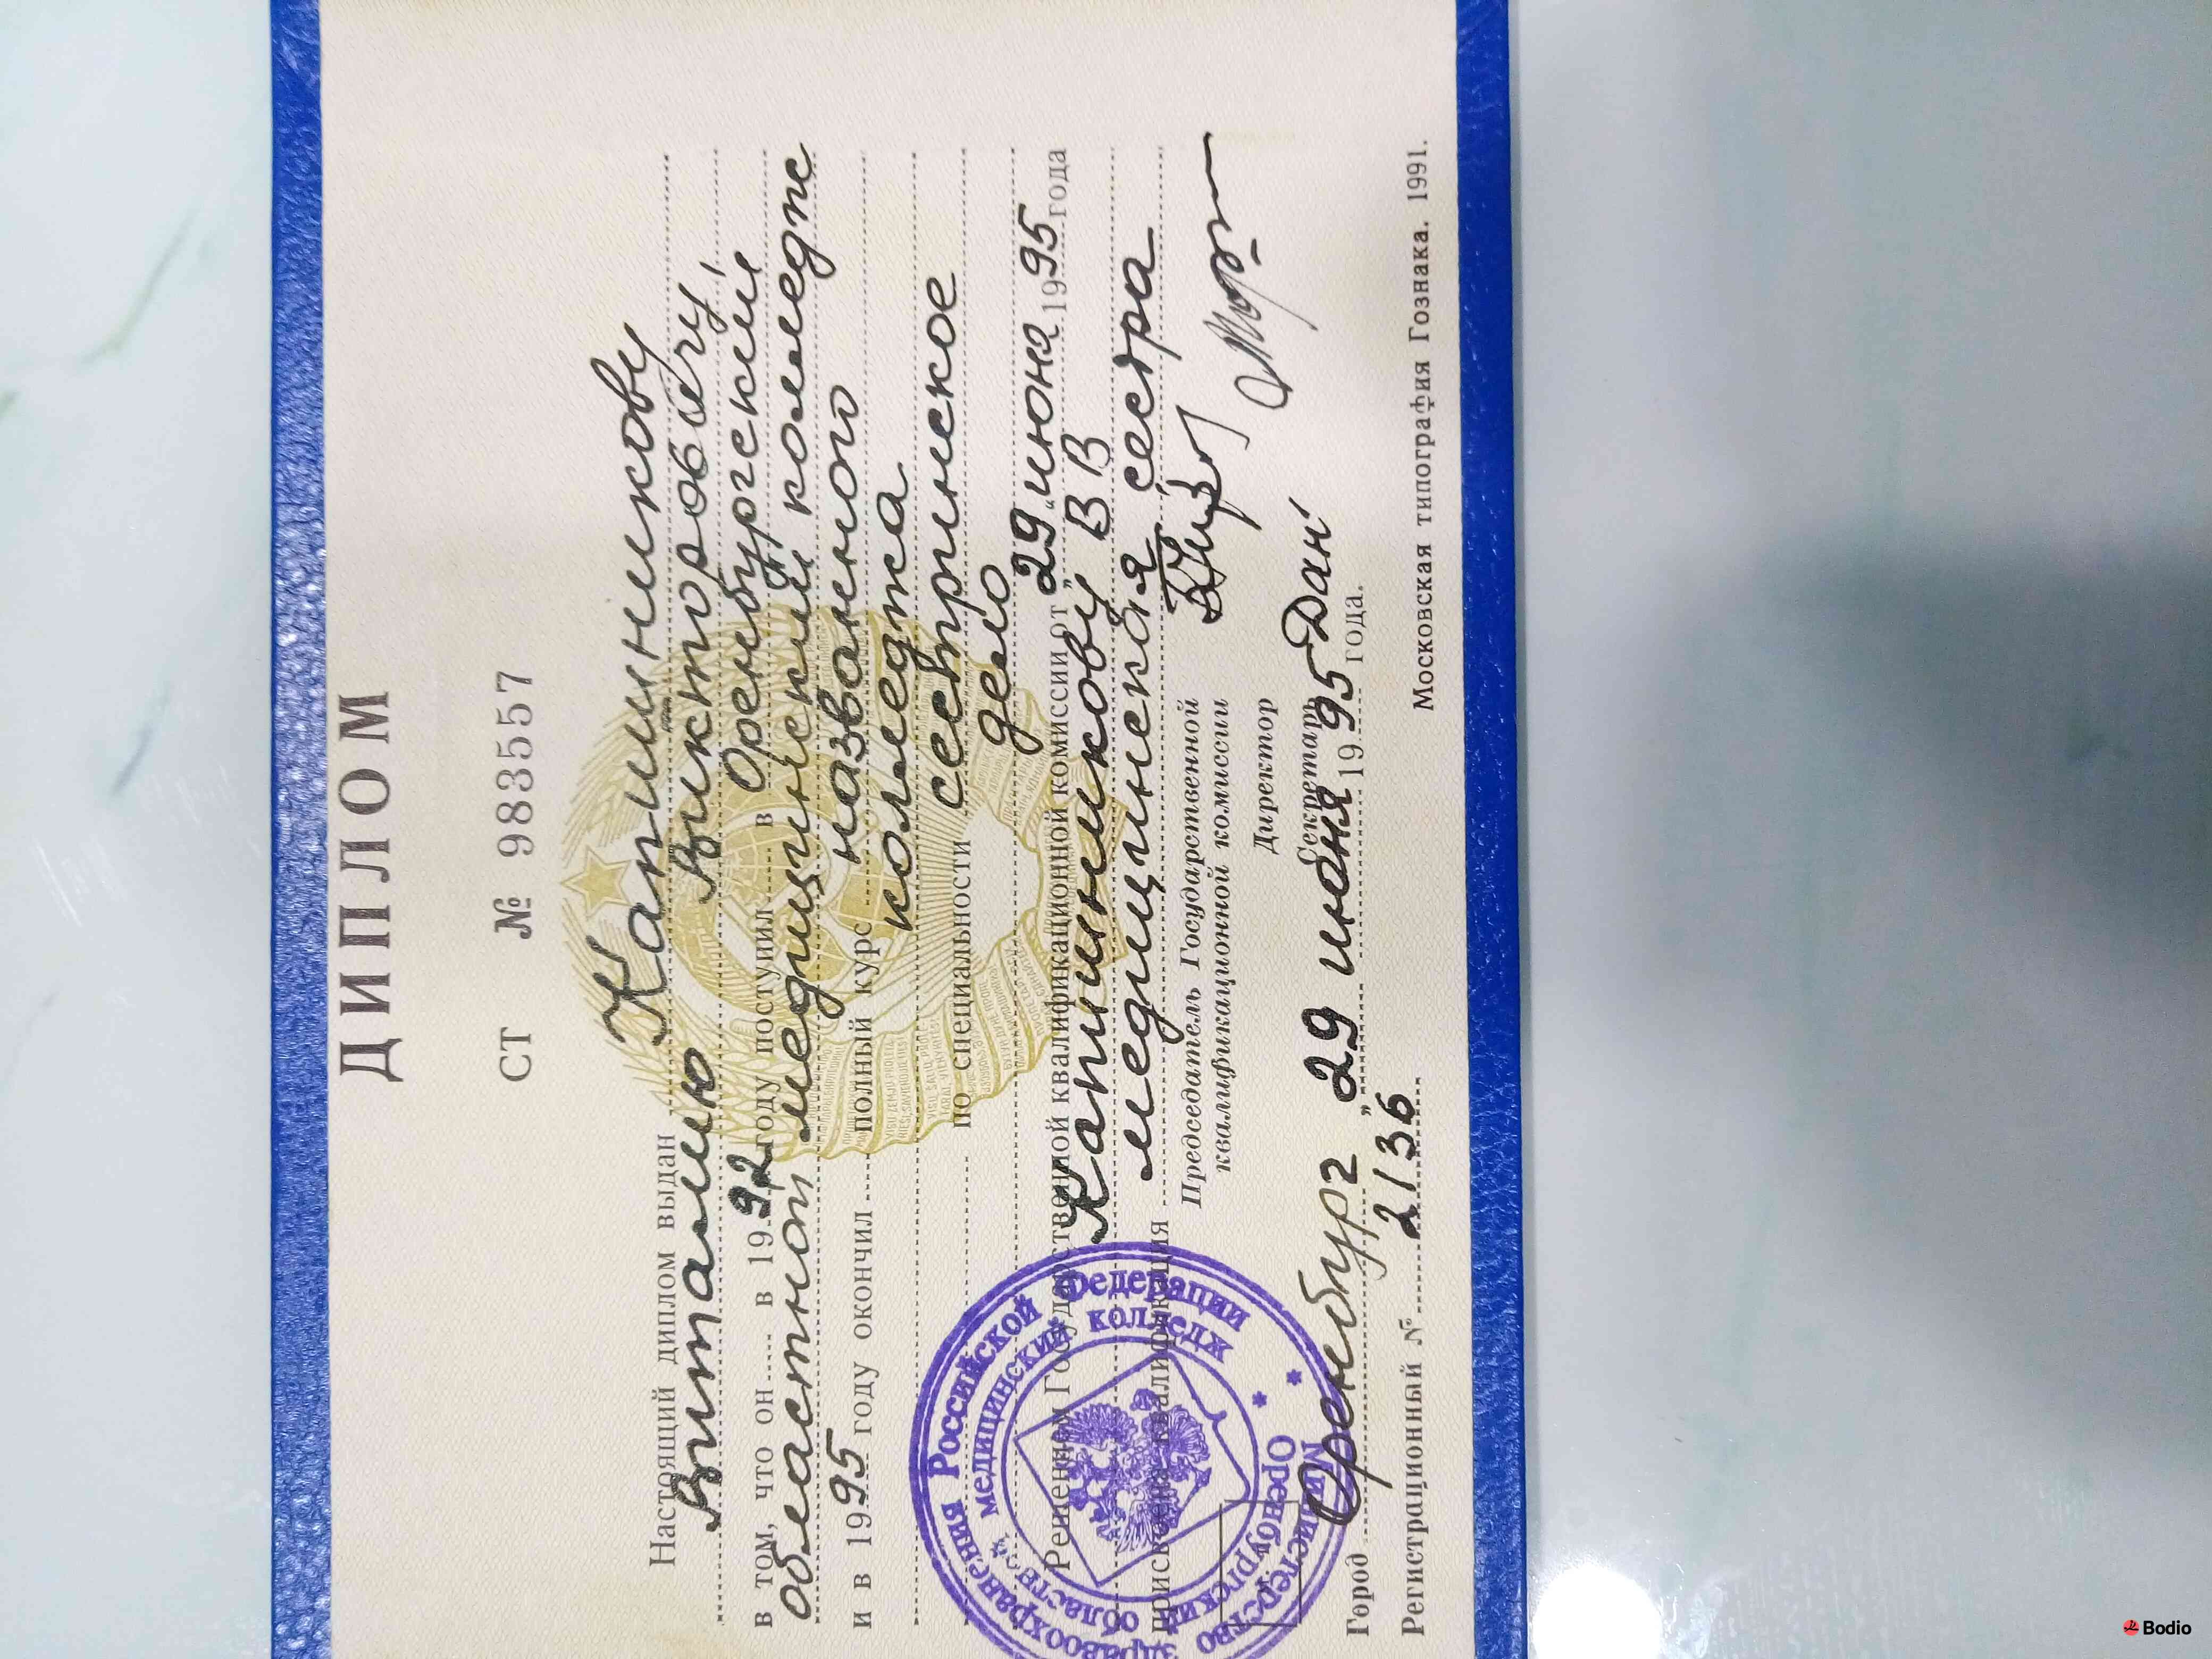 ДИПЛОМ
СТ № 983557
Настоящий диплом выдан Капишникову
Виталию Викторовичу,
в том, что он в 1992 году поступил в Оренбургский
областной медицинский колледж
и в 1995 году окончил полный курс названного
колледжа
по специальности сестринское
дело
Решением Государственной квалификационной комиссии от „29“ июня 1995 года
Капишникову В В
присвоена квалификация медицинская сестра
Председатель Государственной
квалификационной комиссии
Директор
Секретарь
Город Оренбург „29 июня 1995 года.
Регистрационный № 2136
Московская типография Гознака. 1991.
Министерство здравоохранения Российской Федерации
Оренбургский областной медицинский колледж
Bodio